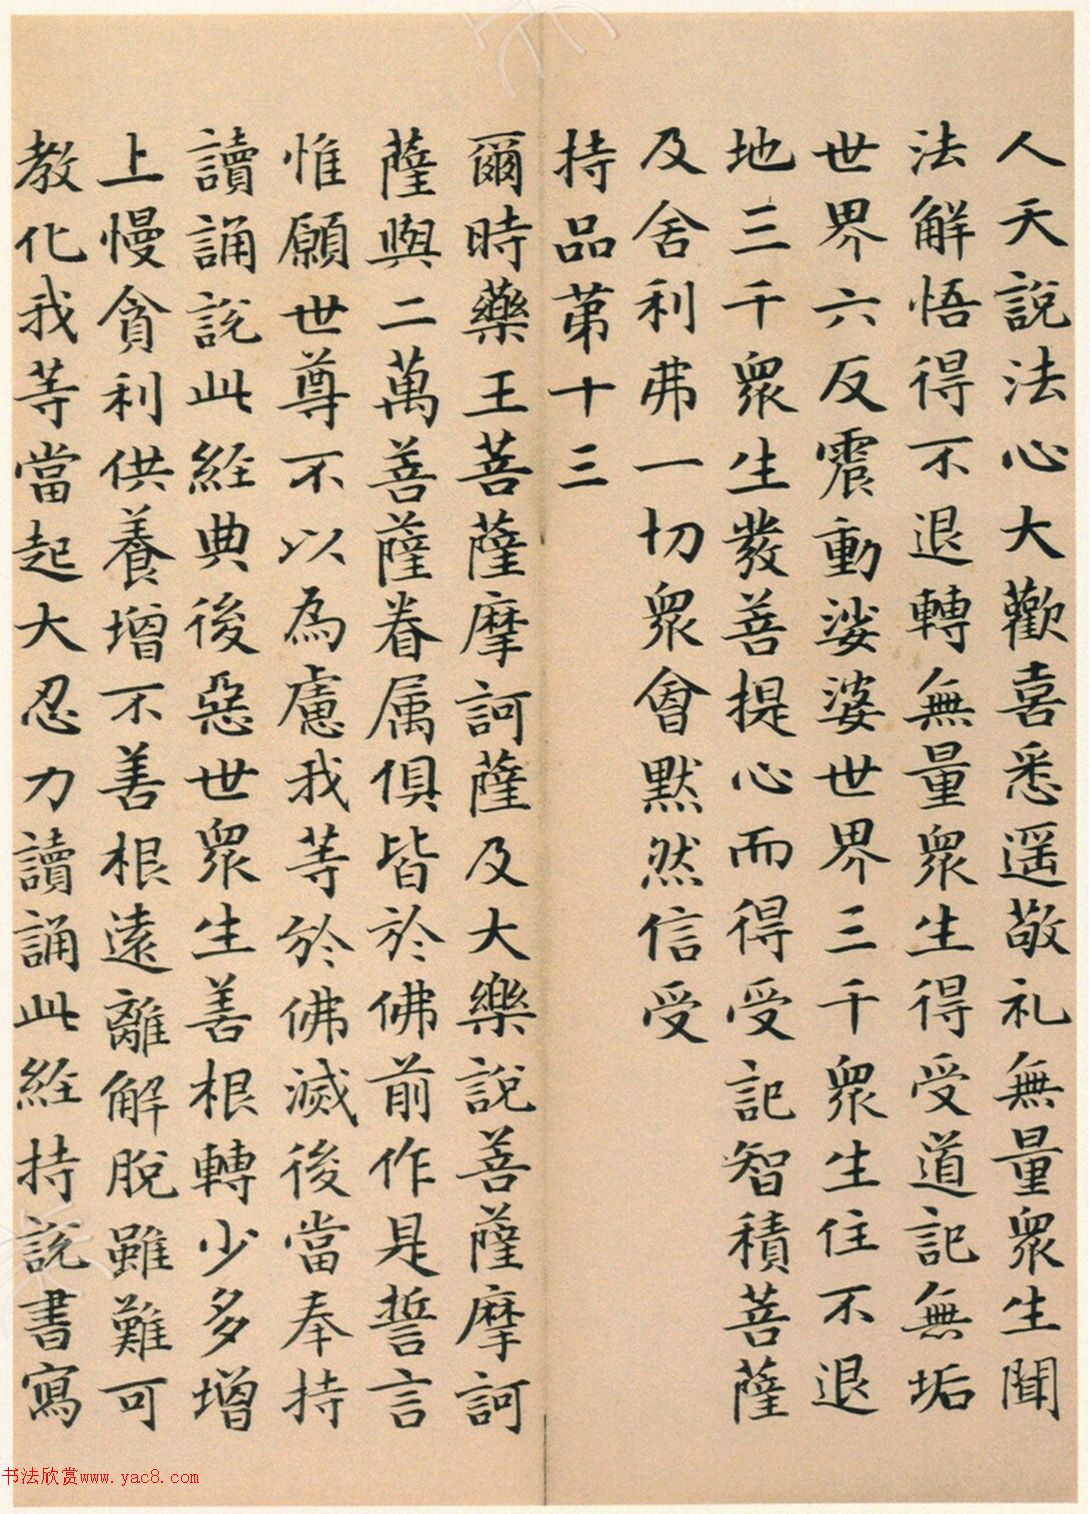 人天說法心大歡喜悉遥敬礼無量眾生聞
法解悟得不退轉無量眾生得受道記無垢
世界六反震動娑婆世界三千眾生住不退
地三千眾生發菩提心而得受記智積菩薩
及舍利弗一切眾會默然信受
持品第十三
爾時藥王菩薩摩訶薩及大樂說菩薩摩訶
薩與二萬菩薩眷属俱皆於佛前作是誓言
惟願世尊不以為慮我等於佛滅後當奉持
讀誦說此經典後惡世眾生善根轉少多增
上慢貪利供養增不善根遠離解脫雖難可
教化我等當起大忍力讀誦此經持說書寫
书法欣赏www.yac8.com